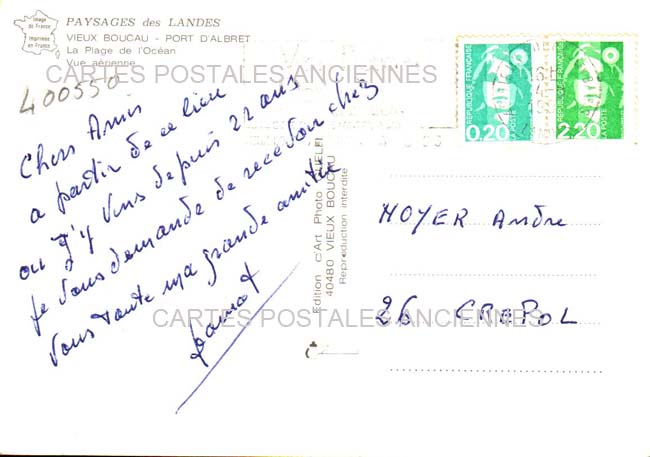 Image de France
Imprimée en France
PAYSAGES des LANDES
VIEUX BOUCAU - PORT D'ALBRET
La Plage de l'Océan
Vue aérienne
CARTES POSTALES ANCIENNES
400550
Chers Amis
a partir de ce lieu
ou j'y viens depuis 22 ans
je vous demande de recevoir chez
vous toute ma grande amitié
Edition d'Art Photo
40480 VIEUX BOUCAU
Reproduction interdite
REPUBLIQUE FRANÇAISE
0,20
LA POSTE
REPUBLIQUE FRANÇAISE
2,20
LA POSTE
MOYER André
26 CREPOL
CARTES POSTALES ANCIENNES